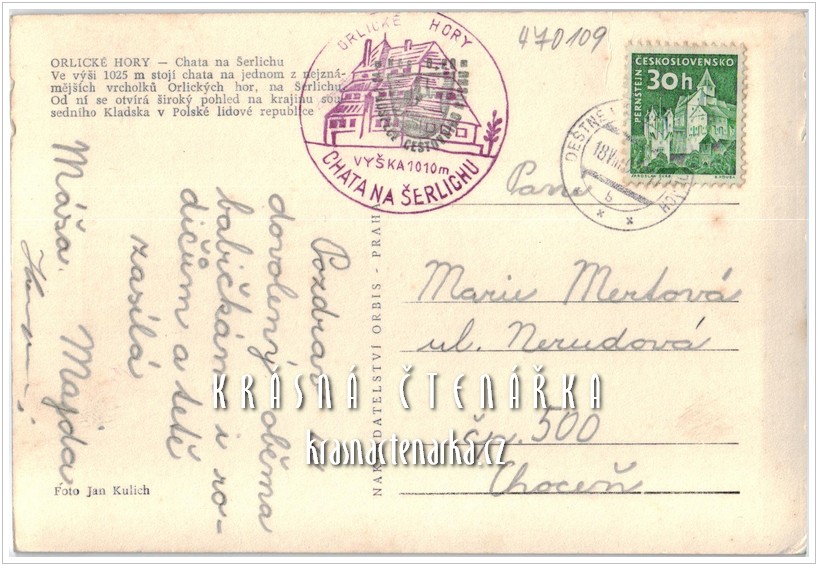 ORLICKÉ HORY — Chata na Šerlichu
Ve výši 1025 m stojí chata na jednom z nejzná-
mějších vrcholků Orlických hor, na Šerlichu.
Od ní se otvírá široký pohled na krajinu sou-
sedního Kladska v Polské lidové republice
ORLICKÉ HORY
VÝŠKA 1010 m
CHATA NA ŠERLICHU
470109
ČESKOSLOVENSKO
30h
PERNŠTEJN
DEŠTNÉ
18.VIII
b
Pozdrav z
dovolený oběma
babičkám i ro-
dičům a tetě
zasílá
Majda
Máša.
Paní
Marie Mertová
ul. Nerudová
čp. 500
Choceň
NAKLADATELSTVÍ ORBIS - PRAHA
Foto Jan Kulich
KRÁSNÁ ČTENÁŘKA
krasnactenarka.cz